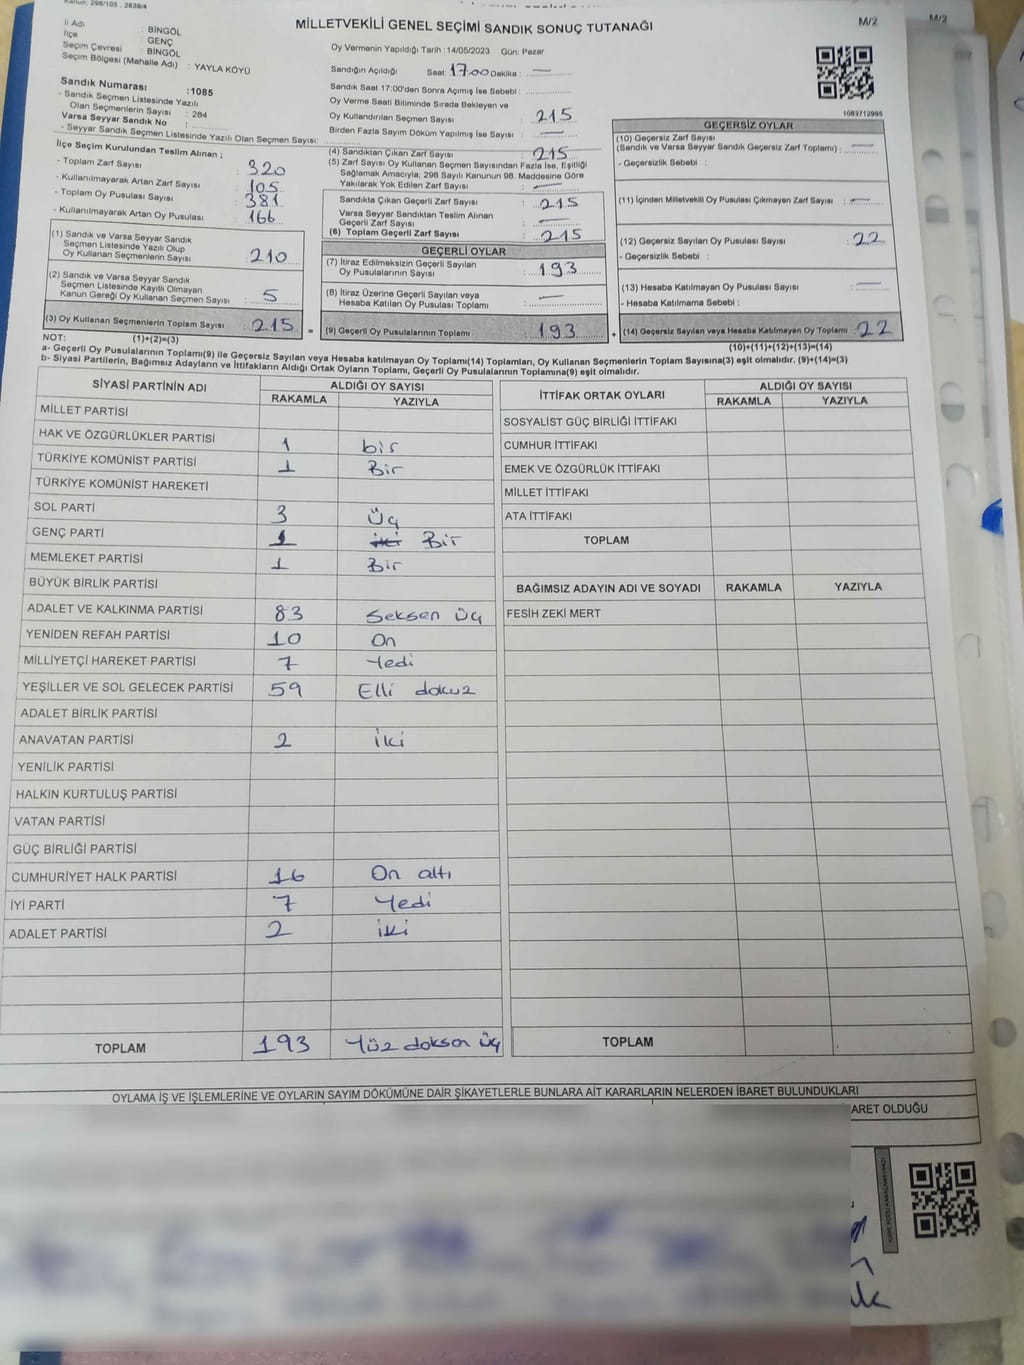 Kanun: 298/105 . 2839/4
MİLLETVEKİLİ GENEL SEÇİMİ SANDIK SONUÇ TUTANAĞI
M/2
M/2
İl Adı : BİNGÖL
İlçe : GENÇ
Seçim Çevresi : BİNGÖL
Seçim Bölgesi (Mahalle Adı) : YAYLA KÖYÜ
Sandık Numarası :1085
- Sandık Seçmen Listesinde Yazılı
Olan Seçmenlerin Sayısı : 284
Varsa Seyyar Sandık No :
- Seyyar Sandık Seçmen Listesinde Yazılı Olan Seçmen Sayısı:
İlçe Seçim Kurulundan Teslim Alınan ;
- Toplam Zarf Sayısı : 320
- Kullanılmayarak Artan Zarf Sayısı : 105
- Toplam Oy Pusulası Sayısı : 381
- Kullanılmayarak Artan Oy Pusulası : 166
(1) Sandık ve Varsa Seyyar Sandık
Seçmen Listesinde Yazılı Olup
Oy Kullanan Seçmenlerin Sayısı : 210
(2) Sandık ve Varsa Seyyar Sandık
Seçmen Listesinde Kayıtlı Olmayan
Kanun Gereği Oy Kullanan Seçmen Sayısı : 5
(3) Oy Kullanan Seçmenlerin Toplam Sayısı : 215 =
Oy Vermenin Yapıldığı Tarih :14/05/2023 Gün: Pazar
Sandığın Açıldığı Saat: 17.00 Dakika : —
Sandık Saat 17:00'den Sonra Açımış İse Sebebi :
Oy Verme Saati Bitiminde Sırada Bekleyen ve
Oy Kullandırılan Seçmen Sayısı : 215
Birden Fazla Sayım Döküm Yapılmış İse Sayısı : —
(4) Sandıktan Çıkan Zarf Sayısı : 215
(5) Zarf Sayısı Oy Kullanan Seçmen Sayısından Fazla İse, Eşitliği
Sağlamak Amacıyla; 298 Sayılı Kanunun 98. Maddesine Göre
Yakılarak Yok Edilen Zarf Sayısı : —
Sandıkta Çıkan Geçerli Zarf Sayısı : 215
Varsa Seyyar Sandıktan Teslim Alınan
Geçerli Zarf Sayısı : —
(6) Toplam Geçerli Zarf Sayısı : 215
GEÇERLİ OYLAR
(7) İtiraz Edilmeksizin Geçerli Sayılan
Oy Pusulalarının Sayısı : 193
(8) İtiraz Üzerine Geçerli Sayılan veya
Hesaba Katılan Oy Pusulası Toplamı : —
(9) Geçerli Oy Pusulalarının Toplamı : 193 +
1083712995
GEÇERSİZ OYLAR
(10) Geçersiz Zarf Sayısı
(Sandık ve Varsa Seyyar Sandık Geçersiz Zarf Toplamı) : —
- Geçersizlik Sebebi :
(11) İçinden Milletvekili Oy Pusulası Çıkmayan Zarf Sayısı : —
(12) Geçersiz Sayılan Oy Pusulası Sayısı : 22
- Geçersizlik Sebebi :
(13) Hesaba Katılmayan Oy Pusulası Sayısı : —
- Hesaba Katılmama Sebebi :
(14) Geçersiz Sayılan veya Hesaba Katılmayan Oy Toplamı : 22
NOT: (1)+(2)=(3) (10)+(11)+(12)+(13)=(14)
a- Geçerli Oy Pusulalarının Toplamı(9) ile Geçersiz Sayılan veya Hesaba katılmayan Oy Toplamı(14) Toplamları, Oy Kullanan Seçmenlerin Toplam Sayısına(3) eşit olmalıdır. (9)+(14)=(3)
b- Siyasi Partilerin, Bağımsız Adayların ve İttifakların Aldığı Ortak Oyların Toplamı, Geçerli Oy Pusulalarının Toplamına(9) eşit olmalıdır.
SİYASİ PARTİNİN ADI ALDIĞI OY SAYISI
RAKAMLA YAZIYLA
MİLLET PARTİSİ
HAK VE ÖZGÜRLÜKLER PARTİSİ 1 bir
TÜRKİYE KOMÜNİST PARTİSİ 1 Bir
TÜRKİYE KOMÜNİST HAREKETİ
SOL PARTİ 3 Üç
GENÇ PARTİ 1 iki Bir
MEMLEKET PARTİSİ 1 Bir
BÜYÜK BİRLİK PARTİSİ
ADALET VE KALKINMA PARTİSİ 83 Seksen Üç
YENİDEN REFAH PARTİSİ 10 On
MİLLİYETÇİ HAREKET PARTİSİ 7 Yedi
YEŞİLLER VE SOL GELECEK PARTİSİ 59 Elli dokuz
ADALET BİRLİK PARTİSİ
ANAVATAN PARTİSİ 2 iki
YENİLİK PARTİSİ
HALKIN KURTULUŞ PARTİSİ
VATAN PARTİSİ
GÜÇ BİRLİĞİ PARTİSİ
CUMHURİYET HALK PARTİSİ 16 On altı
İYİ PARTİ 7 Yedi
ADALET PARTİSİ 2 iki
TOPLAM 193 Yüz doksan üç
İTTİFAK ORTAK OYLARI ALDIĞI OY SAYISI
RAKAMLA YAZIYLA
SOSYALİST GÜÇ BİRLİĞİ İTTİFAKI
CUMHUR İTTİFAKI
EMEK VE ÖZGÜRLÜK İTTİFAKI
MİLLET İTTİFAKI
ATA İTTİFAKI
TOPLAM
BAĞIMSIZ ADAYIN ADI VE SOYADI RAKAMLA YAZIYLA
FESİH ZEKİ MERT
TOPLAM
OYLAMA İŞ VE İŞLEMLERİNE VE OYLARIN SAYIM DÖKÜMÜNE DAİR ŞİKAYETLERLE BUNLARA AİT KARARLARIN NELERDEN İBARET BULUNDUKLARI
ARET OLDUĞU